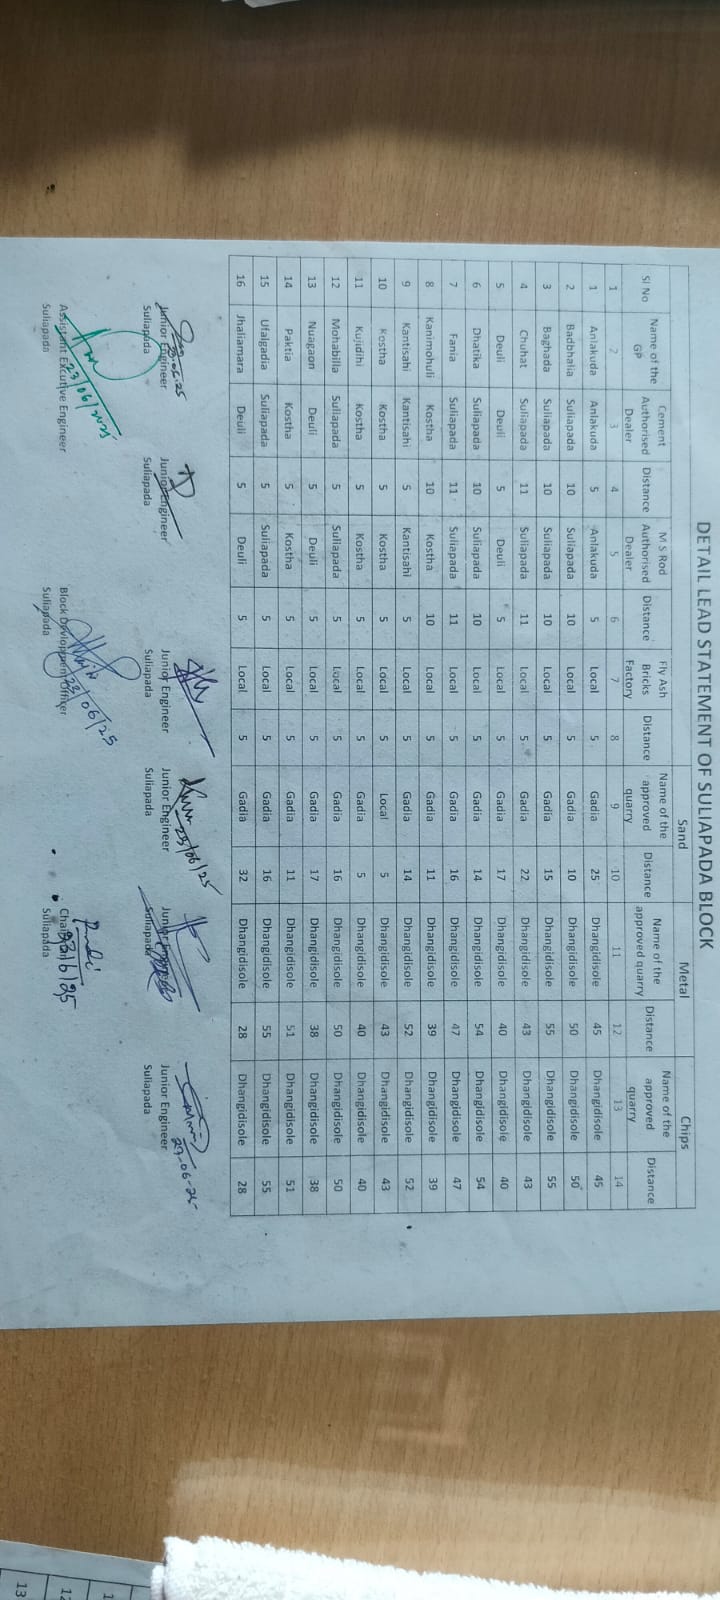 DETAIL LEAD STATEMENT OF SULIAPADA BLOCK
Sand Metal Chips
Sl No Name of the GP Cement Authorised Dealer Distance M S Rod Authorised Dealer Distance Fly Ash Bricks Factory Distance Name of the approved quarry Distance Name of the approved quarry Distance Name of the approved quarry Distance
1 2 3 4 5 6 7 8 9 10 11 12 13 14
1 Anlakuda Anlakuda 5 Anlakuda 5 Local 5 Gadia 25 Dhangidisole 45 Dhangidisole 45
2 Badbhalia Suliapada 10 Suliapada 10 Local 5 Gadia 10 Dhangidisole 50 Dhangidisole 50
3 Baghada Suliapada 10 Suliapada 10 Local 5 Gadia 15 Dhangidisole 55 Dhangidisole 55
4 Chuhat Suliapada 11 Suliapada 11 Local 5 Gadia 22 Dhangidisole 43 Dhangidisole 43
5 Deuli Deuli 5 Deuli 5 Local 5 Gadia 17 Dhangidisole 40 Dhangidisole 40
6 Dhatika Suliapada 10 Suliapada 10 Local 5 Gadia 14 Dhangidisole 54 Dhangidisole 54
7 Fania Suliapada 11 Suliapada 11 Local 5 Gadia 16 Dhangidisole 47 Dhangidisole 47
8 Kanimohuli Kostha 10 Kostha 10 Local 5 Gadia 11 Dhangidisole 39 Dhangidisole 39
9 Kantisahi Kantisahi 5 Kantisahi 5 Local 5 Gadia 14 Dhangidisole 52 Dhangidisole 52
10 Kostha Kostha 5 Kostha 5 Local 5 Local 5 Dhangidisole 43 Dhangidisole 43
11 Kujidihi Kostha 5 Kostha 5 Local 5 Gadia 5 Dhangidisole 40 Dhangidisole 40
12 Mohabilla Suliapada 5 Suliapada 5 Local 5 Gadia 16 Dhangidisole 50 Dhangidisole 50
13 Nuagaon Deuli 5 Deuli 5 Local 5 Gadia 17 Dhangidisole 38 Dhangidisole 38
14 Paktia Kostha 5 Kostha 5 Local 5 Gadia 11 Dhangidisole 51 Dhangidisole 51
15 Ufalgadia Suliapada 5 Suliapada 5 Local 5 Gadia 16 Dhangidisole 55 Dhangidisole 55
16 Jhaliamara Deuli 5 Deuli 5 Local 5 Gadia 32 Dhangidisole 28 Dhangidisole 28
23.06.25 23/06/25 27-06-25
Junior Engineer Junior Engineer Junior Engineer Junior Engineer Junior Engineer Junior Engineer
Suliapada Suliapada Suliapada Suliapada Suliapada Suliapada
23/06/2025 23/06/25 23/6/25
Assistant Excutive Engineer Block Devlopment Officer
Suliapada Suliapada Suliapada
1
12
13